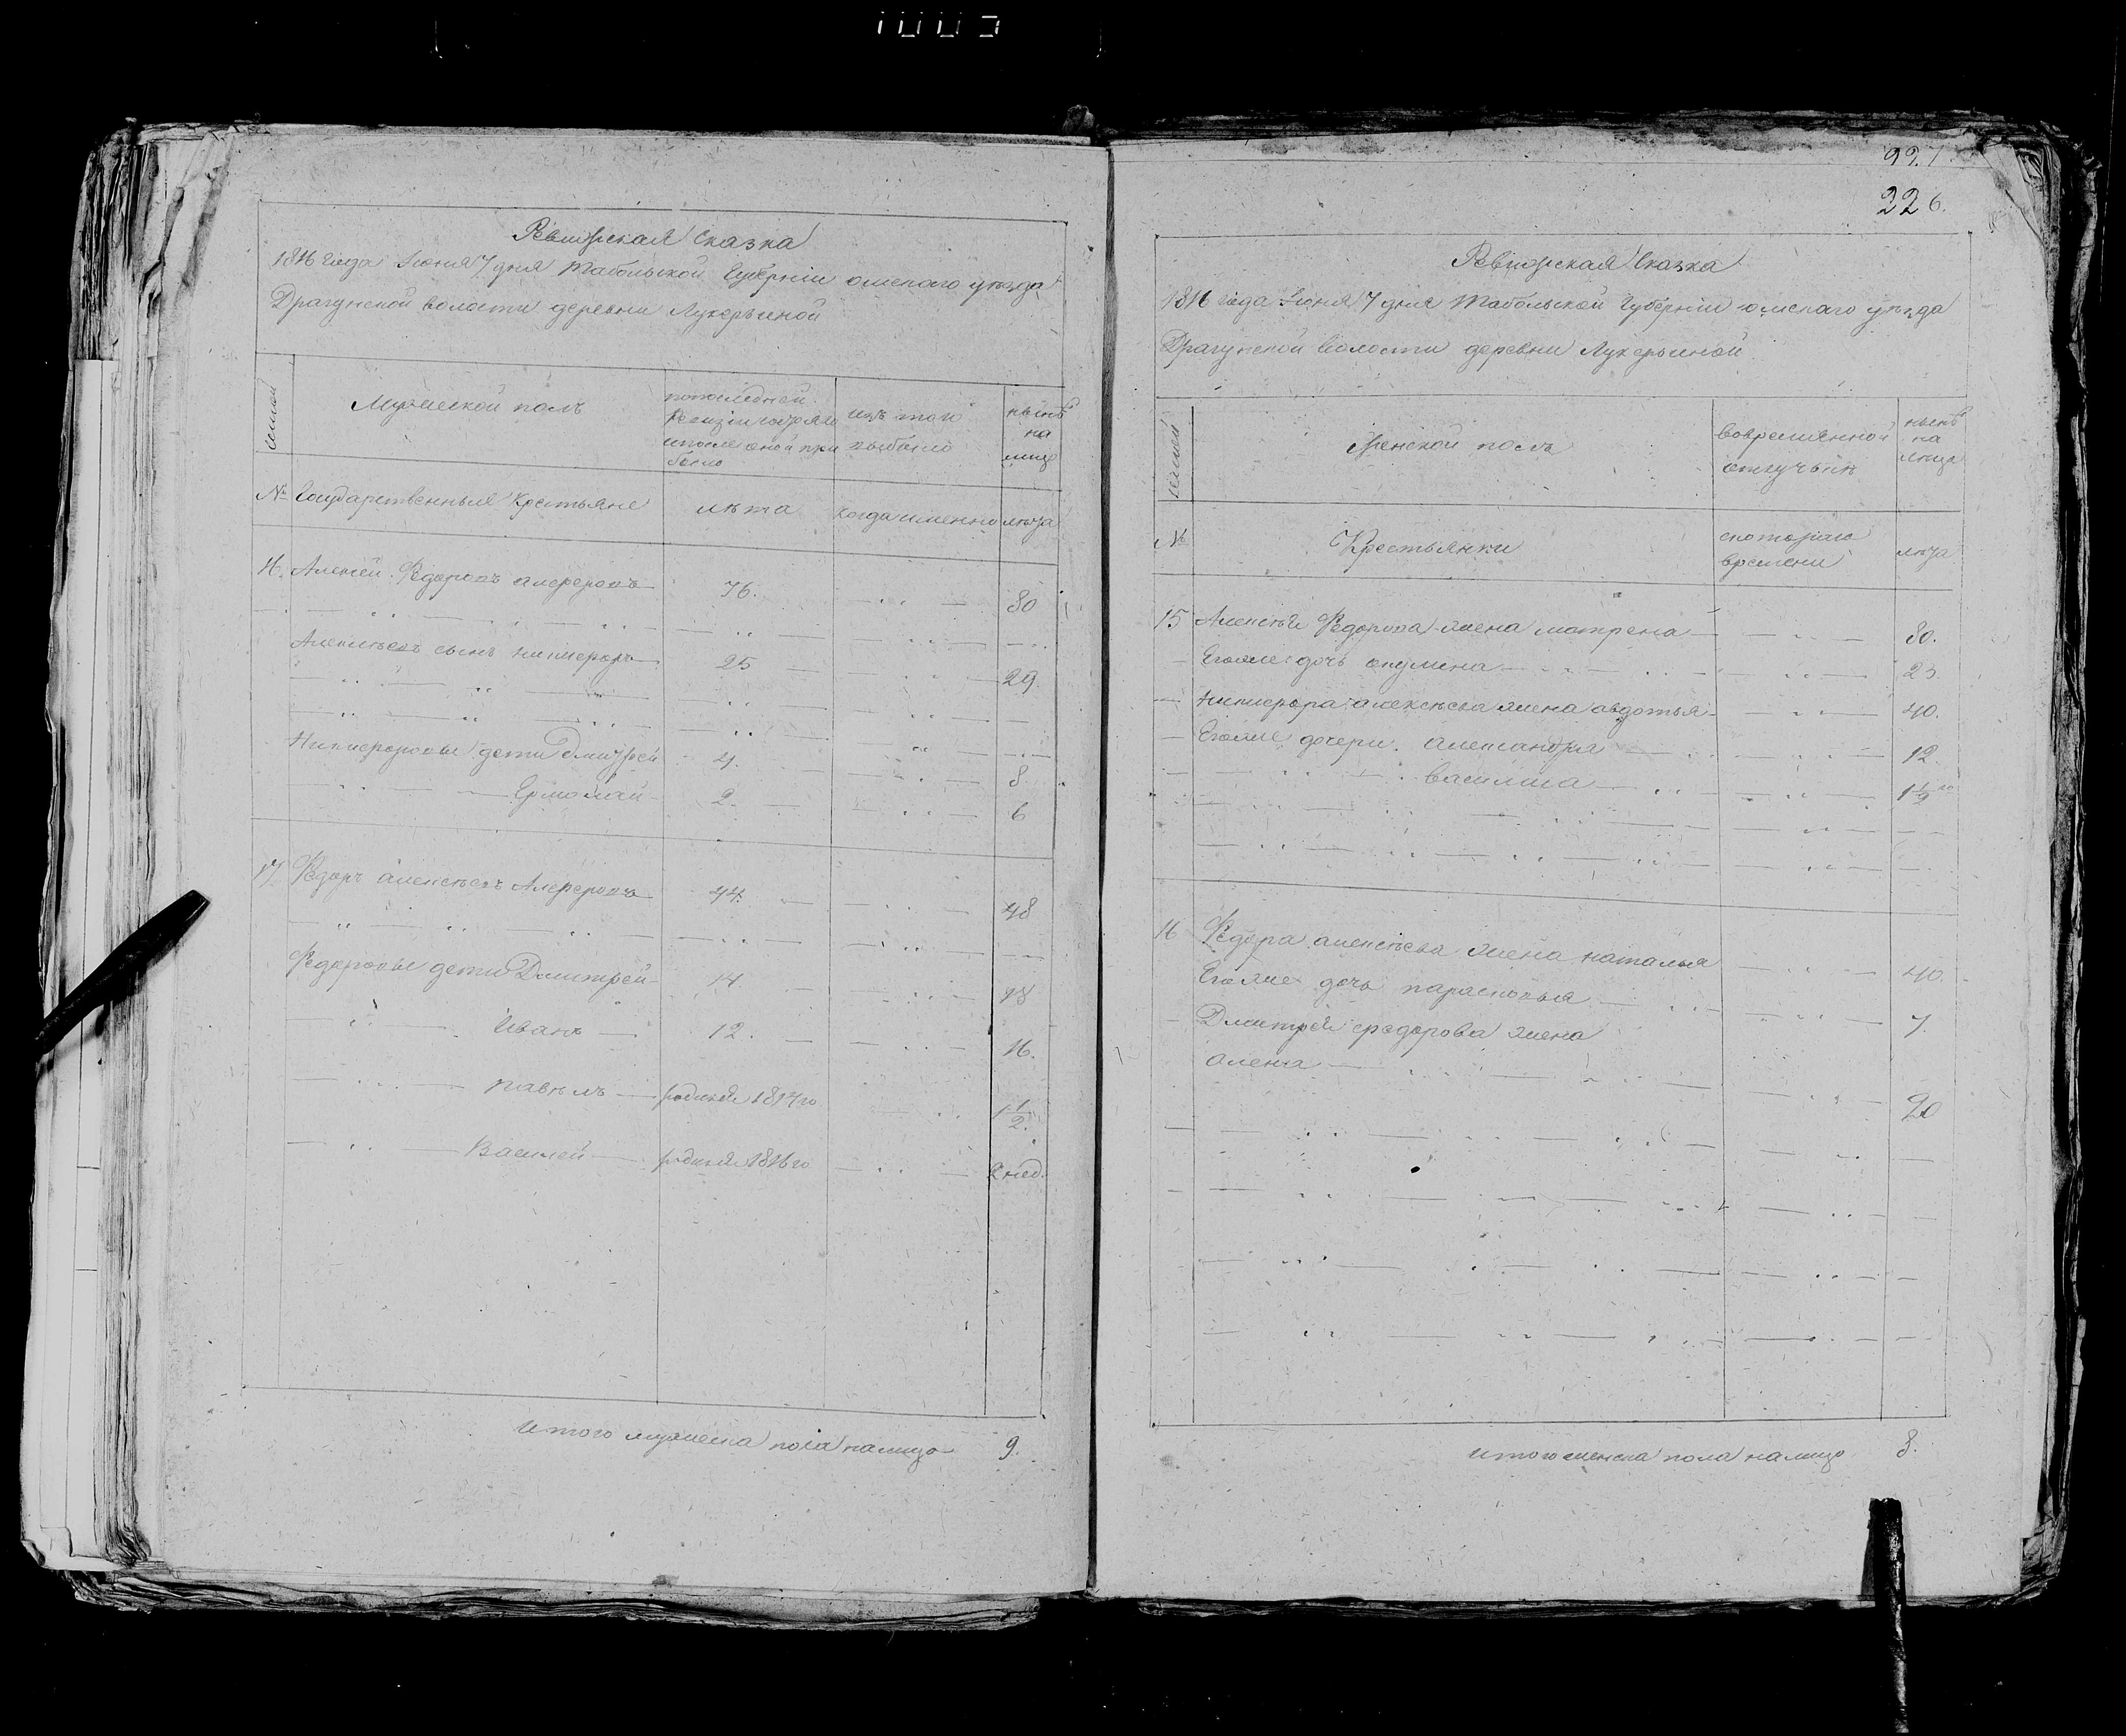 Ревизская Сказка
1816 года Июня 7 дня Табольской Губернiи омскаго уѣзда
Драгунской волости деревни Лукерьиной
семьи
Мужеской полъ
попоследней
Ревизiи состояло
ипосле оной при
было
изъ того
выбыло
нынѣ
на
лицо
№ Государственныя Крестьяне
лѣта
когда именно
лѣта
16. Алексей Федоровъ алферовъ 76. 80
Алексѣевъ сынъ никифоръ 25 29
Никифоровы дети Дмитрей 4. 8
Ермолай 2. 6
17 Федоръ алексѣевъ Алферовъ 44. 48
Федоровы дети Дмитрей 14. 18
Иванъ 12. 16.
павѣлъ родился 1814го 1 1/2.
Василей родился 1816го 2 нед.
итого мужеска пола налицо 9.
997
226.
Ревизская Сказка
1816 года Июня 7 дня Табольской Губернiи омскаго уѣзда
Драгунской волости деревни Лукерьиной
семьи
Женской полъ
вовремянной
отлучьке
нынѣ
на
лицо
№
Крестьянки
скотораго
времени
лѣта
15 Алексѣя Федорова жена матрена 80.
Егоже дочь акулина 23
Никифора алексѣева жена авдотья 40.
Егоже дочери. александра 12.
василиса
16 Федора алексѣева жена наталья 40.
Егоже дочь парасковья 7.
Дмитрея федорова жена
алена 20
итого женска пола налицо 8.